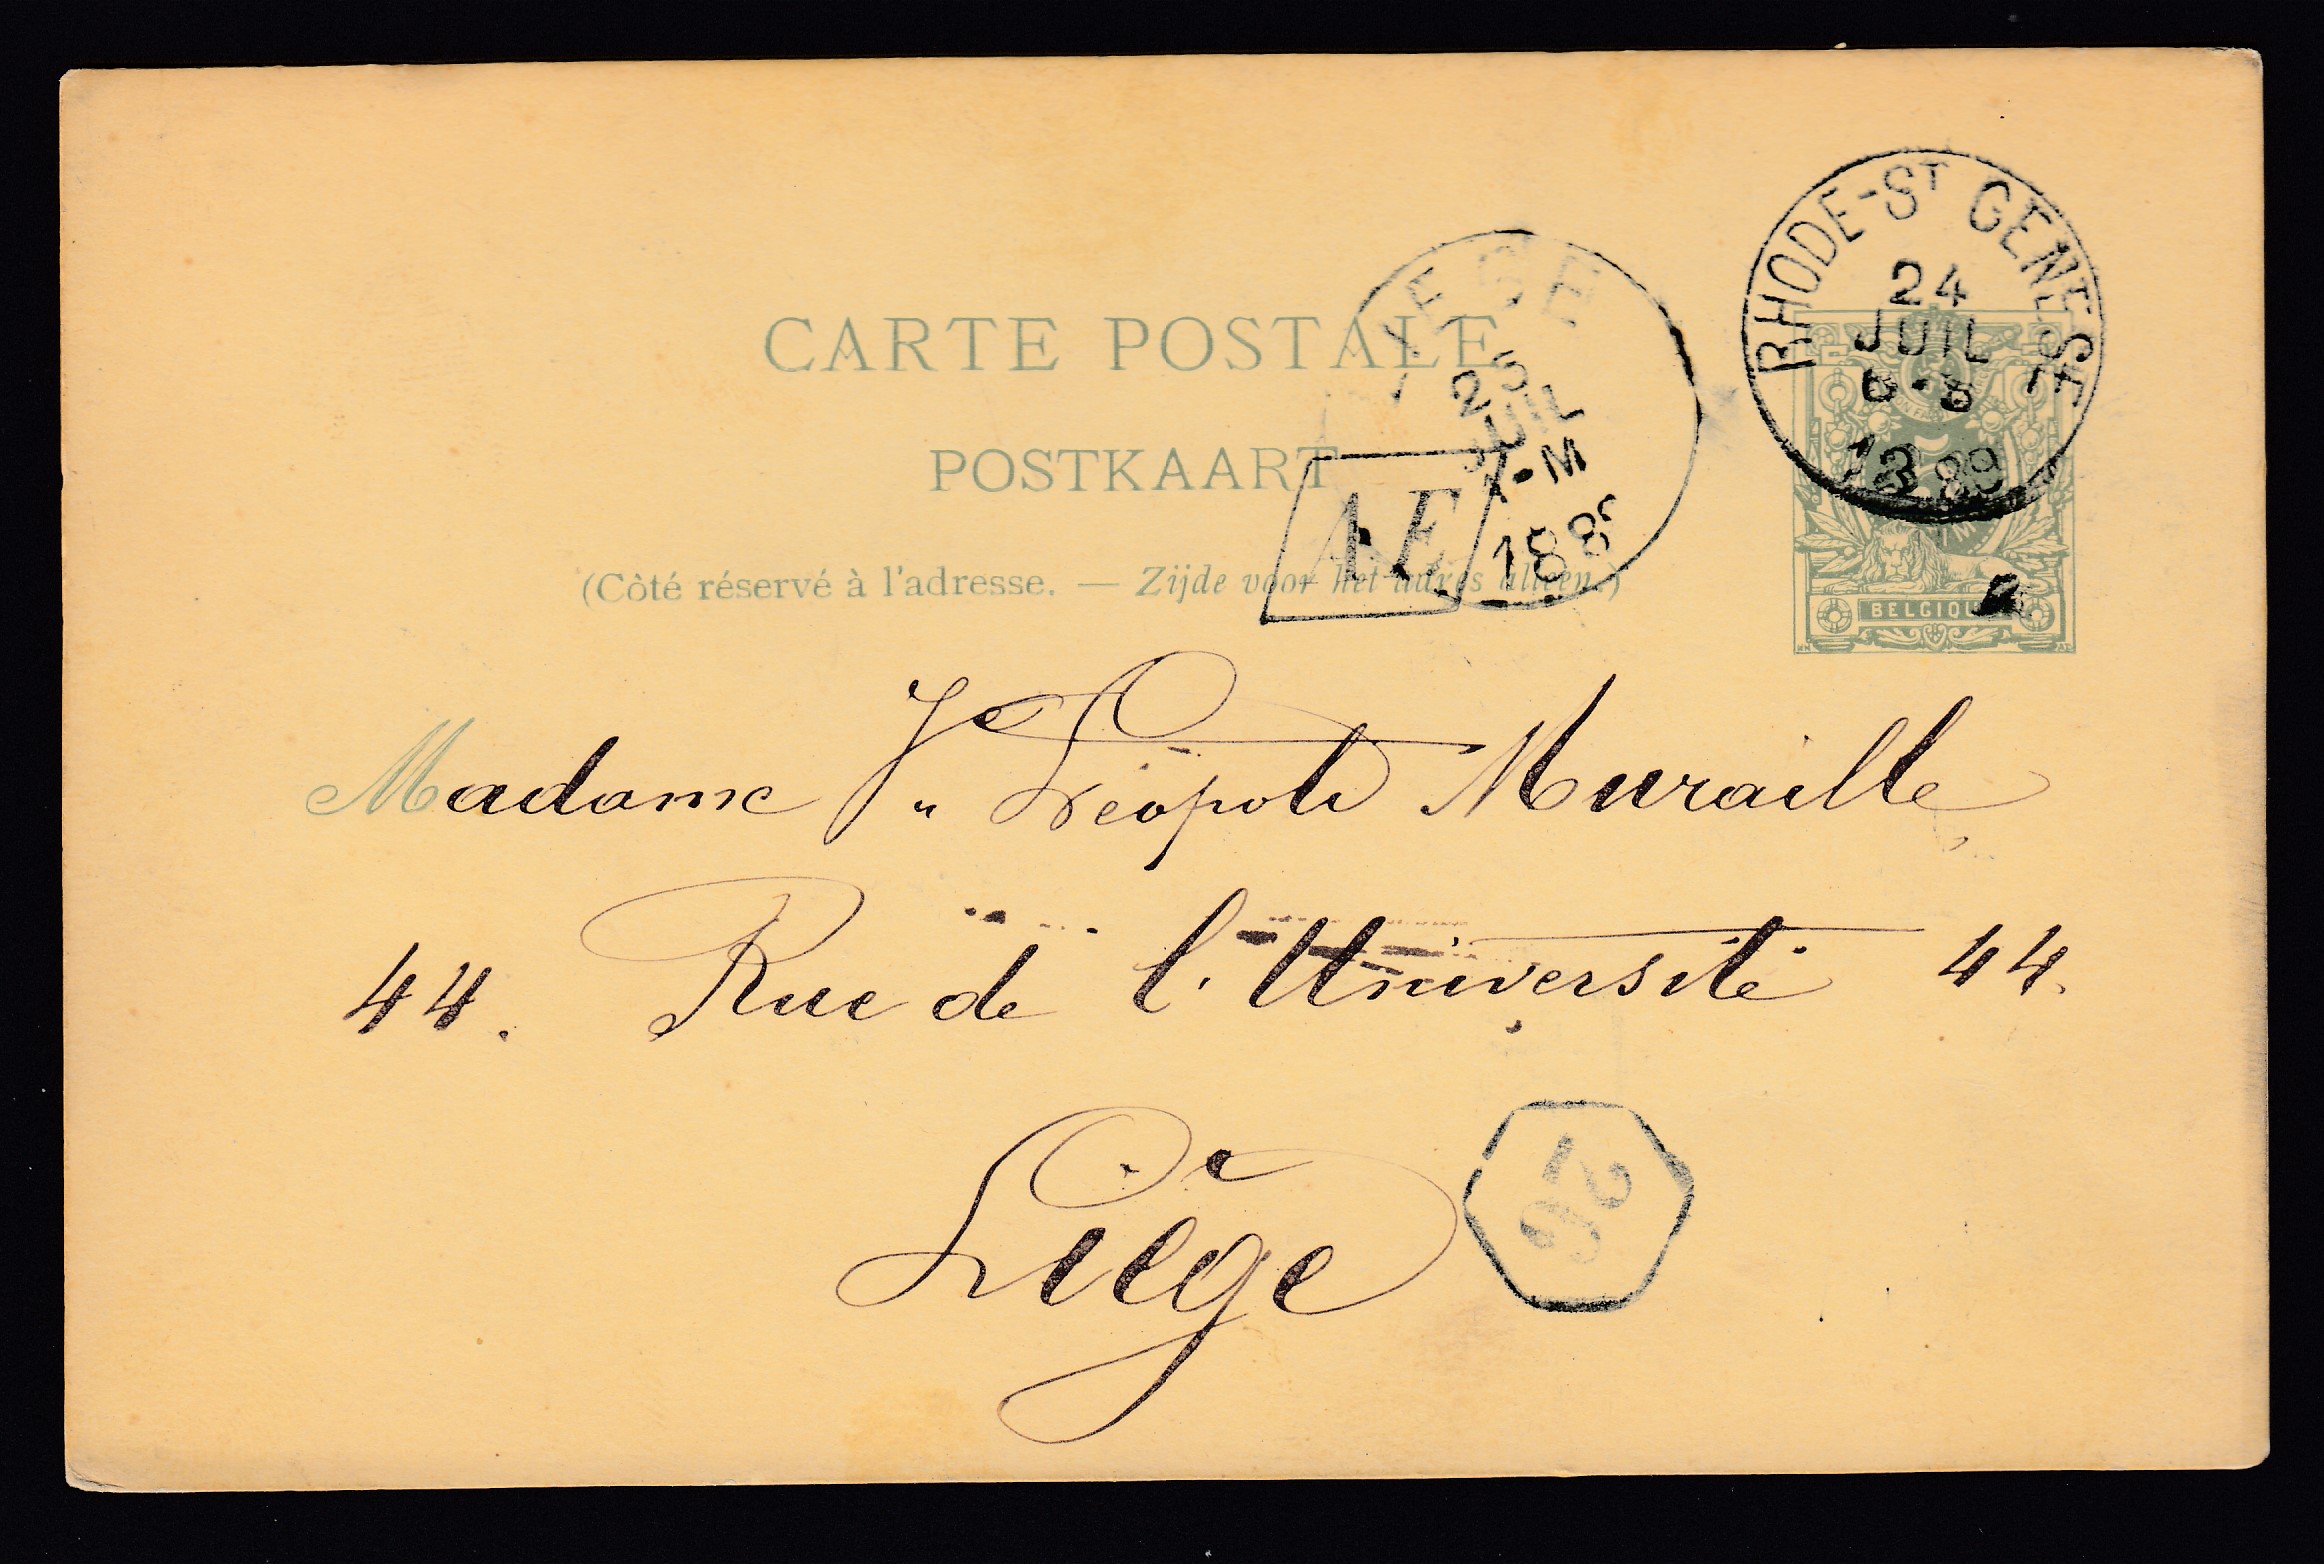 RHODE-ST GENESE
24
JUIL
6-8
1889
LIEGE
25
JUIL
-M
188
CARTE POSTALE
POSTKAART
AE
(Côté réservé à l'adresse. — Zijde voor het adres alleen.)
BELGIQUE
Madame Léopold Muraille
44. Rue de l'Université 44.
Liège
26